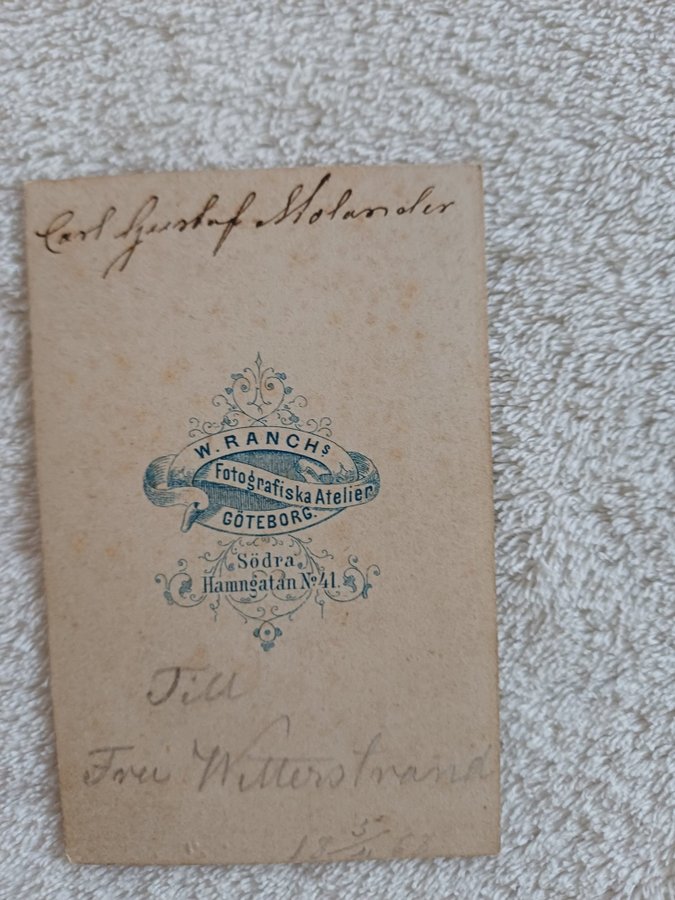 Carl Gustaf Molander
W. RANCHs
Fotografiska Atelier
GÖTEBORG.
Södra
Hamngatan No 41.
Till
Fru Witterstrand